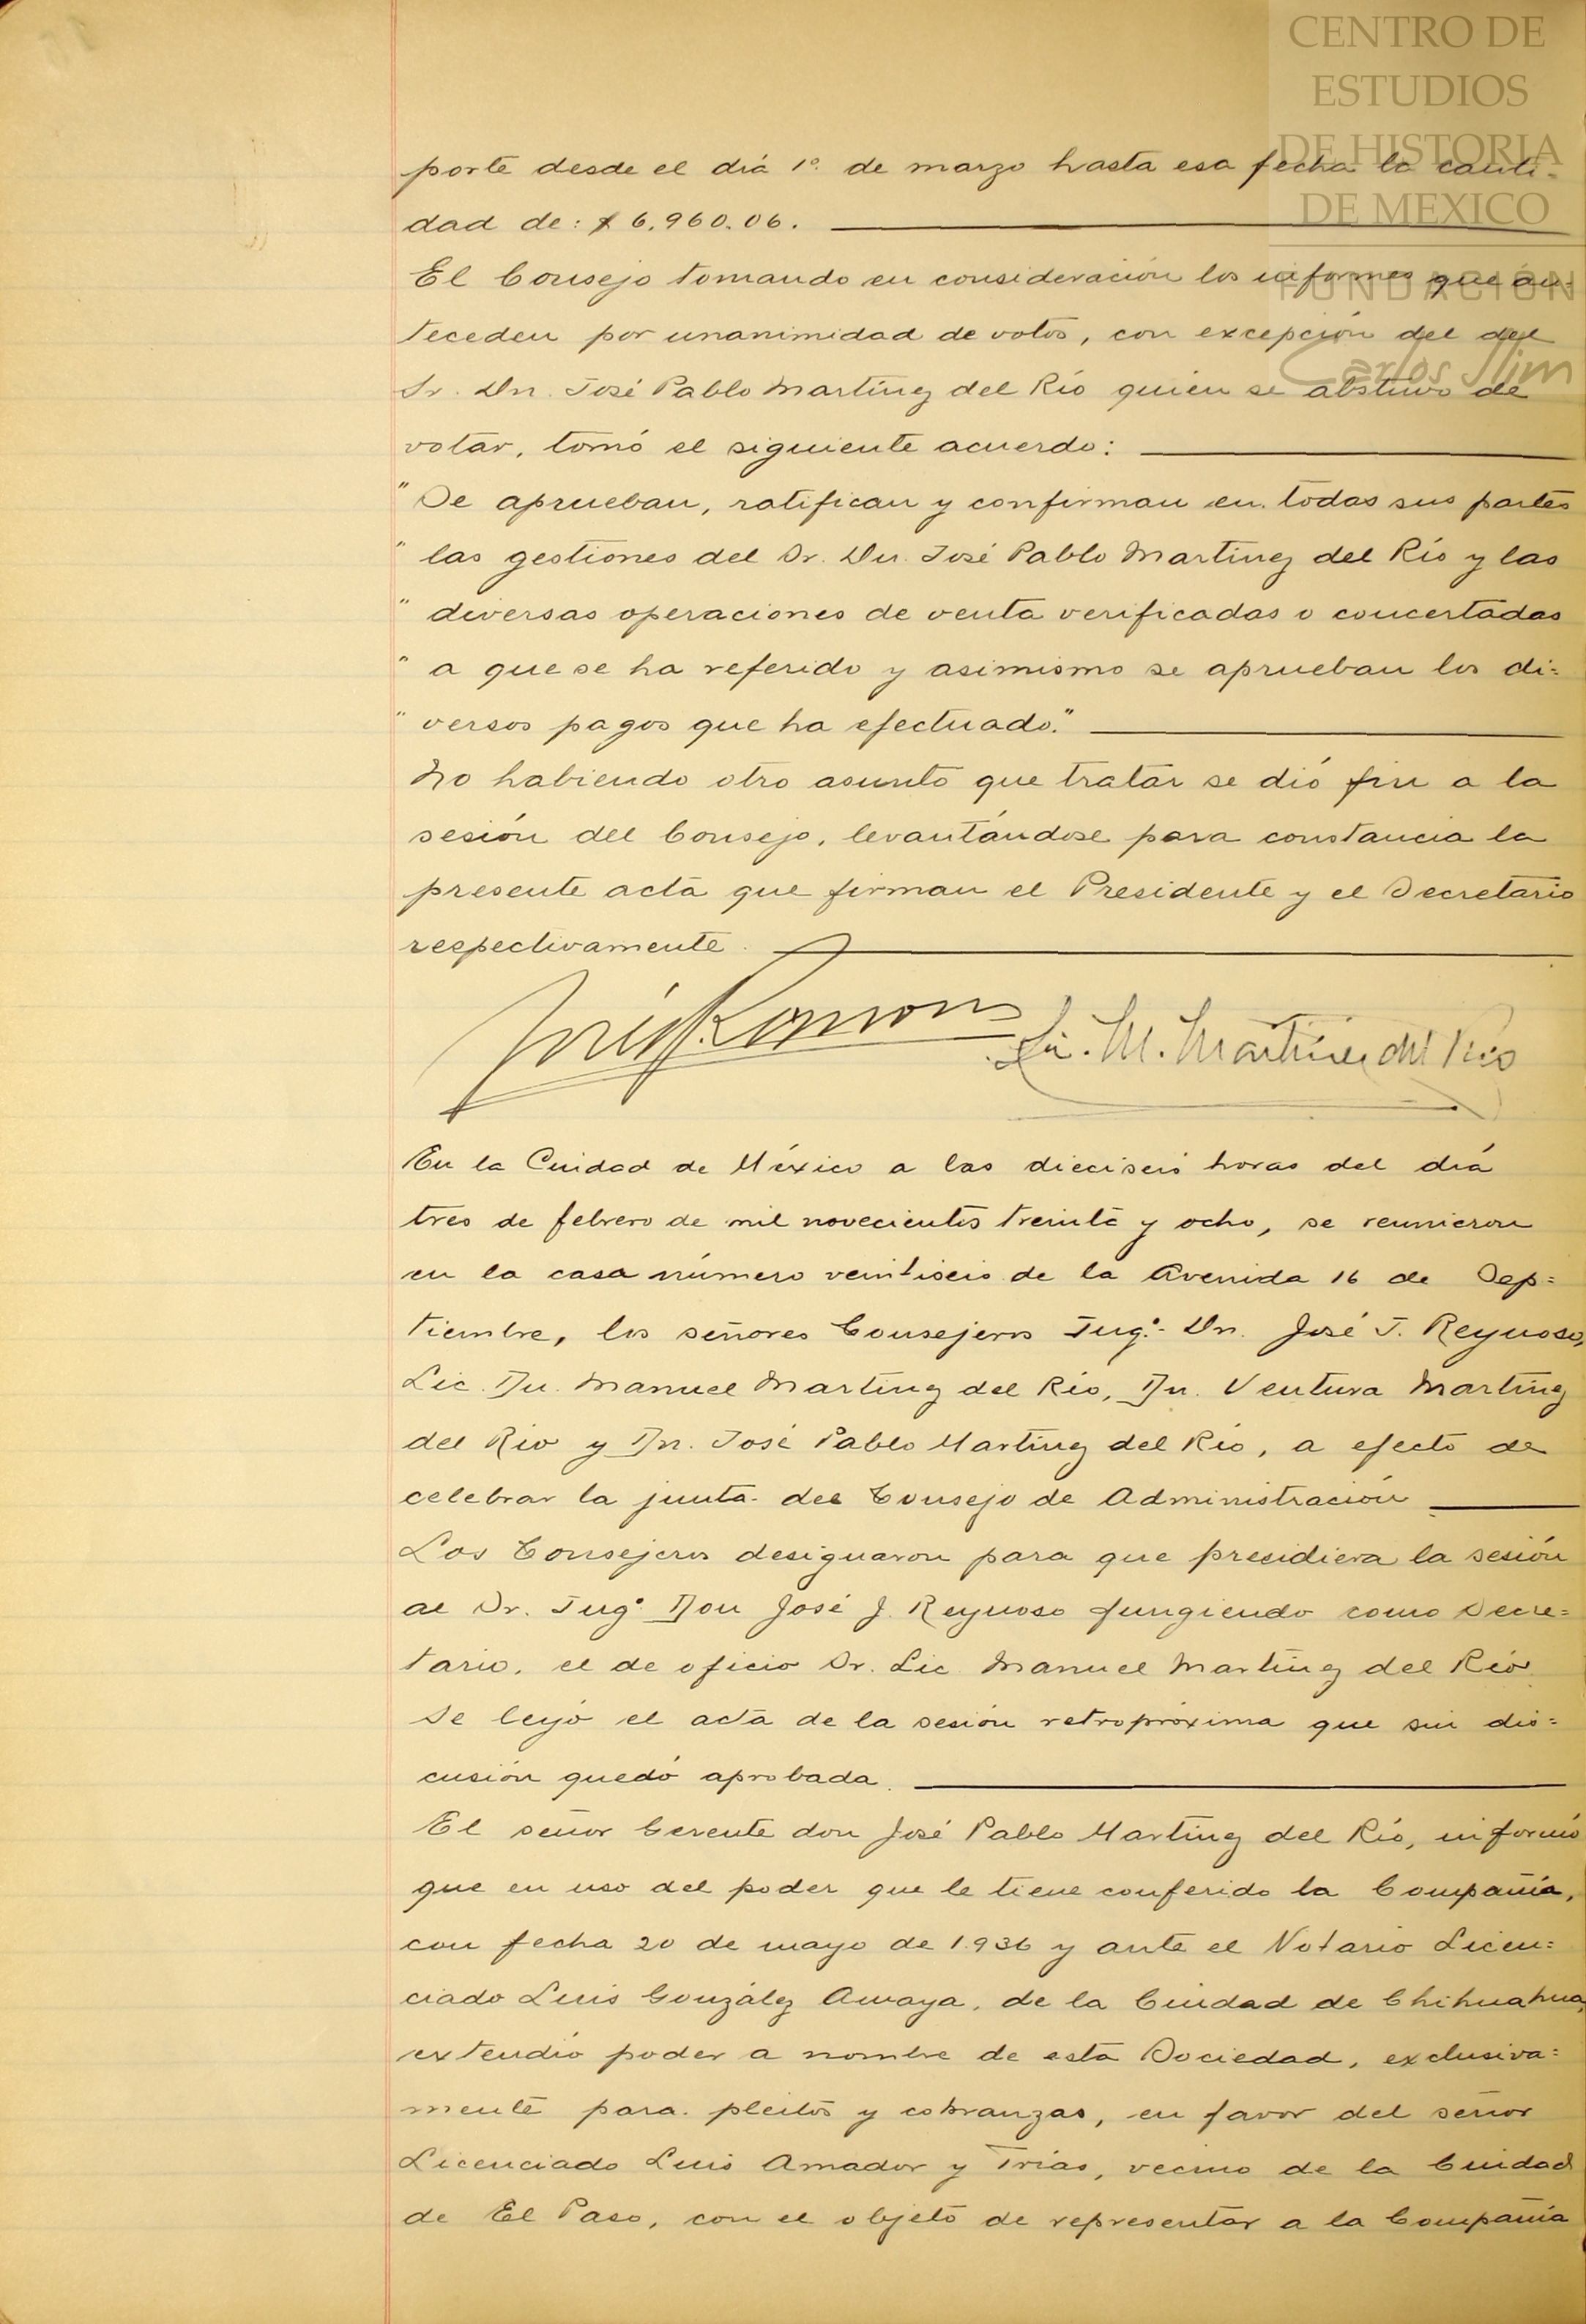 CENTRO DE
ESTUDIOS
DE HISTORIA
DE MEXICO
FUNDACIÓN
Carlos Slim
porte desde el día 1º. de marzo hasta esa fecha la canti-
dad de: $ 6,960.06.
El Consejo tomando en consideración los informes que an-
teceden por unanimidad de votos, con excepción del del
Sr. Dn. José Pablo Martínez del Río quien se abstuvo de
votar, tomó el siguiente acuerdo:
"Se aprueban, ratifican y confirman en todas sus partes
" las gestiones del Sr. Dn. José Pablo Martínez del Río y las
" diversas operaciones de venta verificadas o concertadas
" a que se ha referido y asimismo se aprueban los di=
" versos pagos que ha efectuado."
No habiendo otro asunto que tratar se dió fin a la
sesión del Consejo, levantándose para constancia la
presente acta que firman el Presidente y el Secretario
respectivamente.
Lic. M. Martínez del Río
En la Ciudad de México a las dieciseis horas del día
tres de febrero de mil novecientos treinta y ocho, se reunieron
en la casa número veintiseis de la Avenida 16 de Sep=
tiembre, los señores Consejeros Ingº.- Dn. José J. Reynoso,
Lic. Dn. Manuel Martínez del Río, Dn. Ventura Martínez
del Río y Dn. José Pablo Martínez del Río, a efecto de
celebrar la junta del Consejo de Administración
Los Consejeros designaron para que presidiera la sesión
al Sr. Ingº Don José J. Reynoso fungiendo como Secre=
tario, el de oficio Sr. Lic. Manuel Martínez del Río.
Se leyó el acta de la sesión retropróxima que sin dis=
cusión quedó aprobada.
El señor Gerente don José Pablo Martínez del Río, informó
que en uso del poder que le tiene conferido la Compañía,
con fecha 20 de mayo de 1.936 y ante el Notario Licen=
ciado Luis González Amaya, de la Ciudad de Chihuahua,
extendió poder a nombre de esta Sociedad, exclusiva=
mente para pleitos y cobranzas, en favor del señor
Licenciado Luis Amador y Trías, vecino de la Ciudad
de El Paso, con el objeto de representar a la Compañía